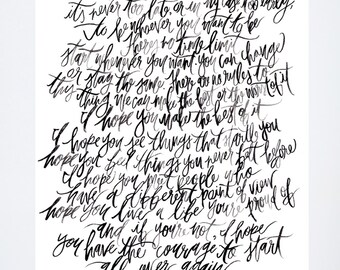 it's never too late or in my case too early
to be whoever you want to be
There's no time limit
start whenever you want you can change
or stay the same. There are no rules to
this thing. We can make the best or the worst of it
I hope you make the best of it
I hope you see things that startle you
hope you feel things you never felt before
I hope you meet people who
have a different point of view
hope you live a life you're proud of
and if you're not, I hope
you have the courage to start
all over again